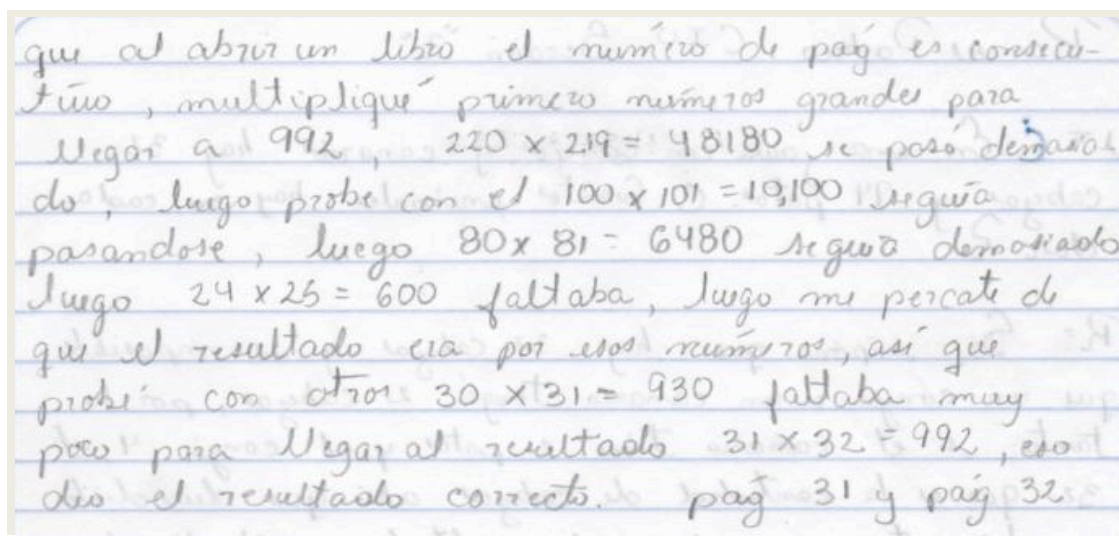 que al abrir un libro el numero de pag es consecu-
tivo, multipliqué primero números grandes para
llegar a 992, 220 x 219 = 48180 se pasó demasia
do, luego probe con el 100 x 101 = 10,100 seguía
pasandose, luego 80 x 81 = 6480 seguia demasiado
luego 24 x 25 = 600 faltaba, luego me percate de
que el resultado era por esos números, asi que
probé con otros 30 x 31 = 930 faltaba muy
poco para llegar al resultado 31 x 32 = 992, eso
dio el resultado correcto. pag 31 y pag 32